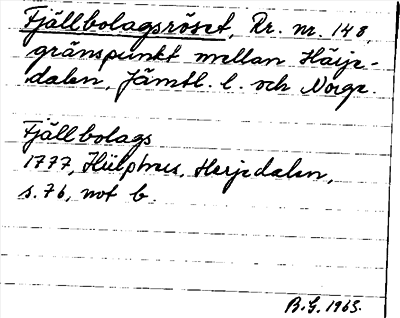 Fjällbolagsröset, Rr. nr. 148,
gränspunkt mellan Härje-
dalen, Jämtl. l. och Norge.
Fjällbolags
1777, Hülphers, Herjedalen,
s. 76, not b.
B.G. 1963.